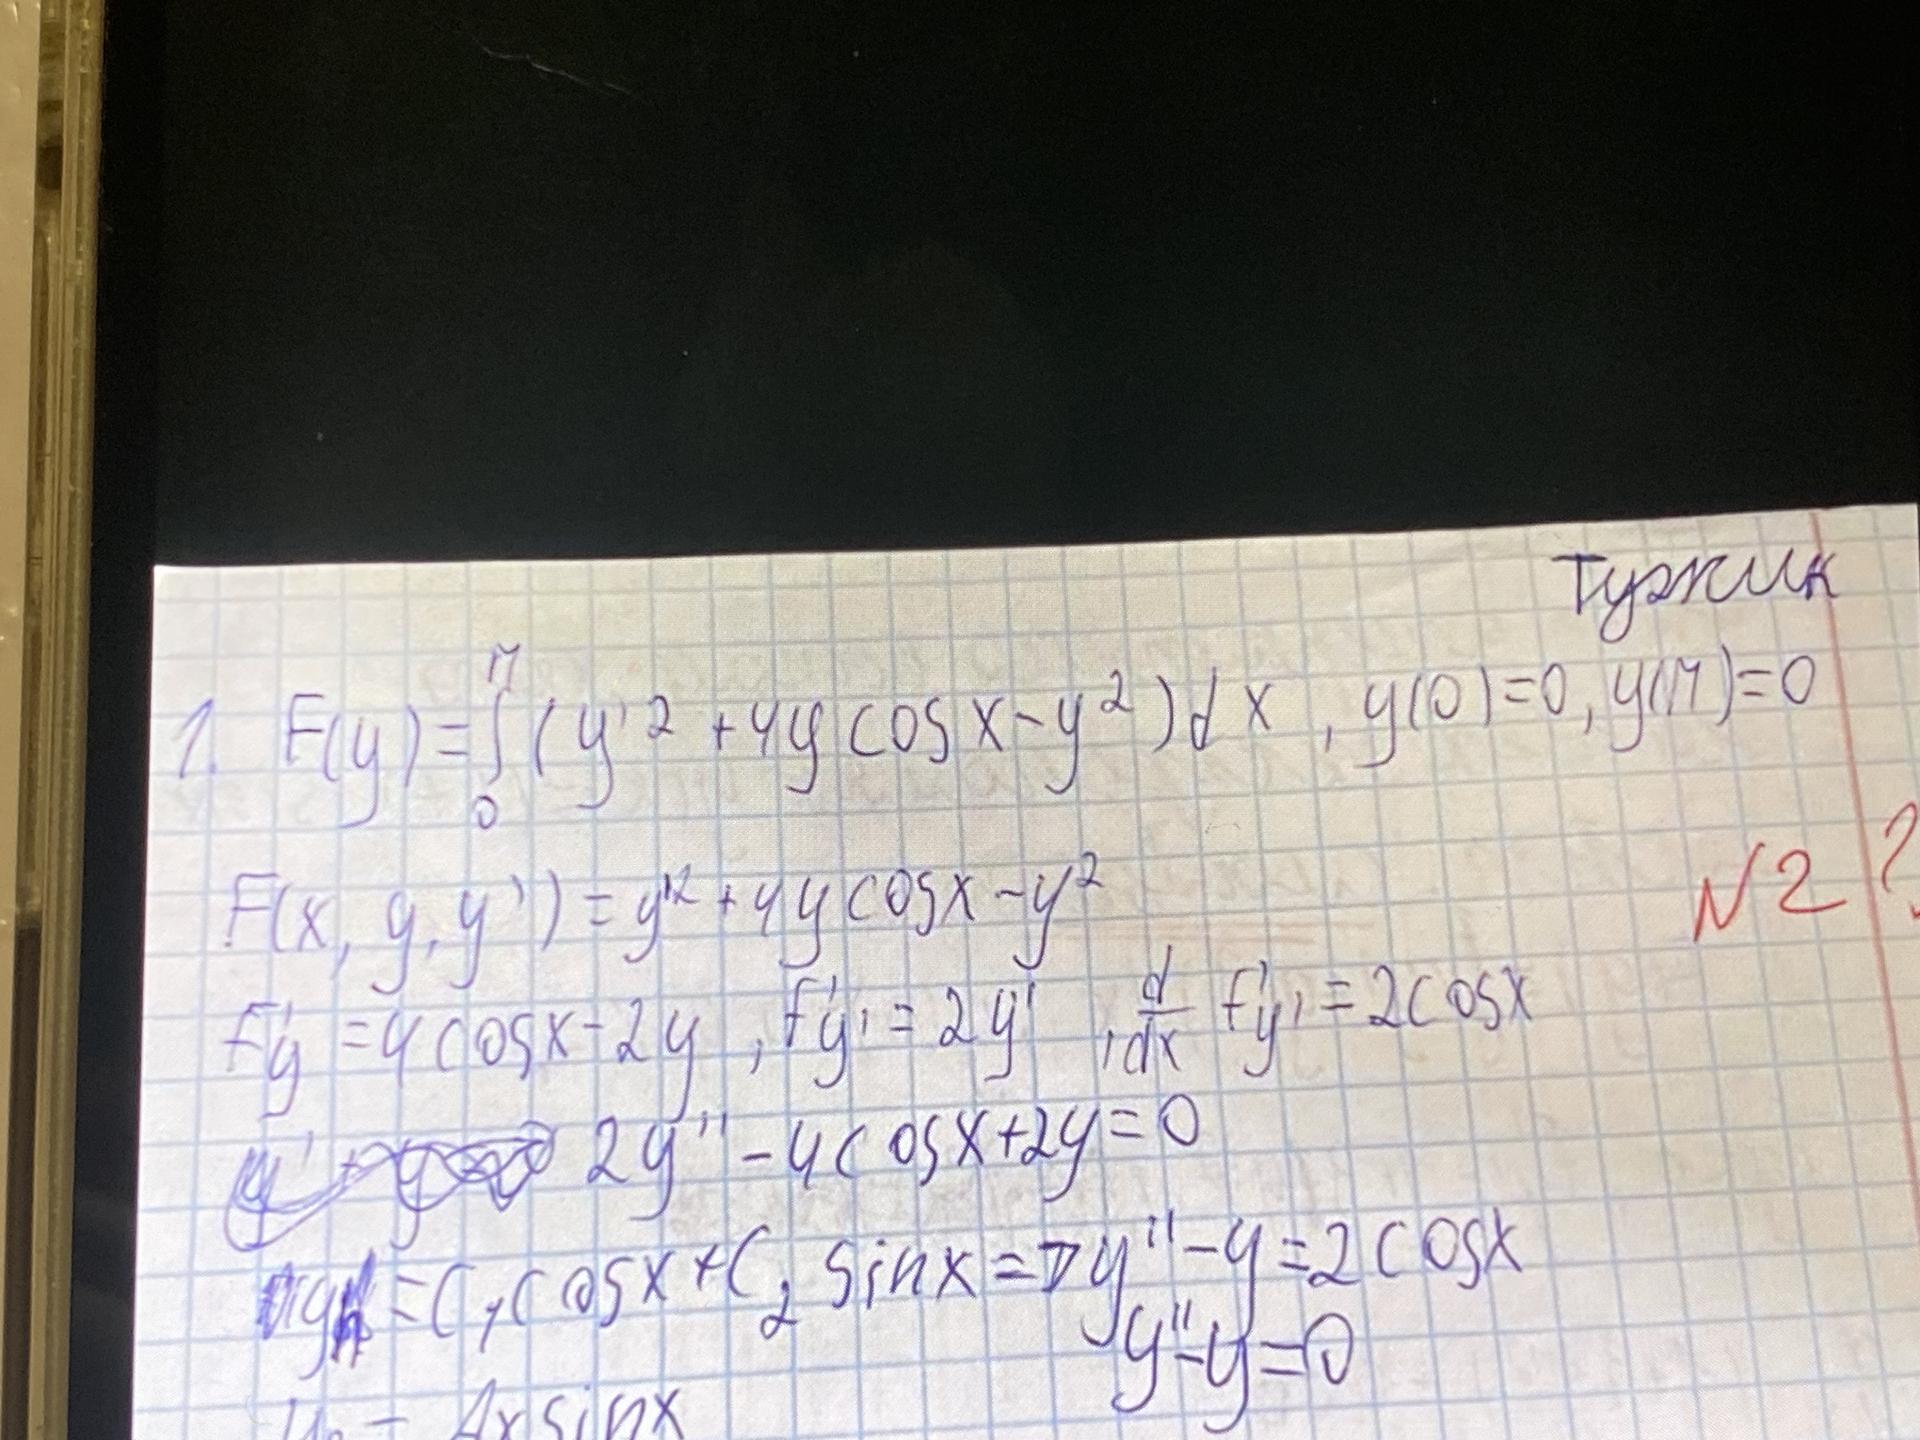 Тужик
1. F(y) = ∫₀^π (y'² + 4y cos x - y²) dx, y(0)=0, y(π)=0
№2 ?
F(x, y, y') = y'² + 4y cos x - y²
F'y = 4 cos x - 2y, F'y' = 2y', d/dx F'y' = 2 cos x
2y'' - 4 cos x + 2y = 0
= C₁ cos x + C₂ sin x => y'' - y = 2 cos x
y'' - y = 0
= Ax sin x